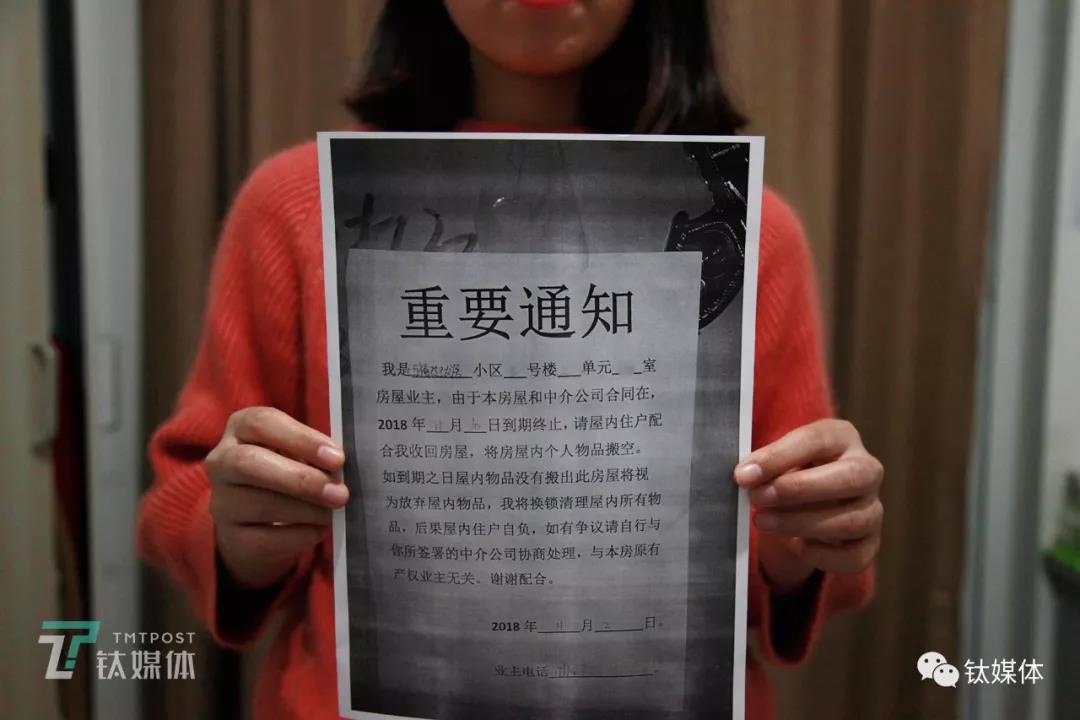 重要通知
我是 小区 号楼 单元 室
房屋业主，由于本房屋和中介公司合同在，
2018年 11 月 日到期终止，请屋内住户配
合我收回房屋，将房屋内个人物品搬空。
如到期之日屋内物品没有搬出此房屋将视
为放弃屋内物品，我将换锁清理屋内所有物
品，后果屋内住户自负，如有争议请自行与
你所签署的中介公司协商处理，与本房原有
产权业主无关。谢谢配合。
2018年 11 月 2 日。
业主电话 。
TMTPOST
钛媒体
钛媒体